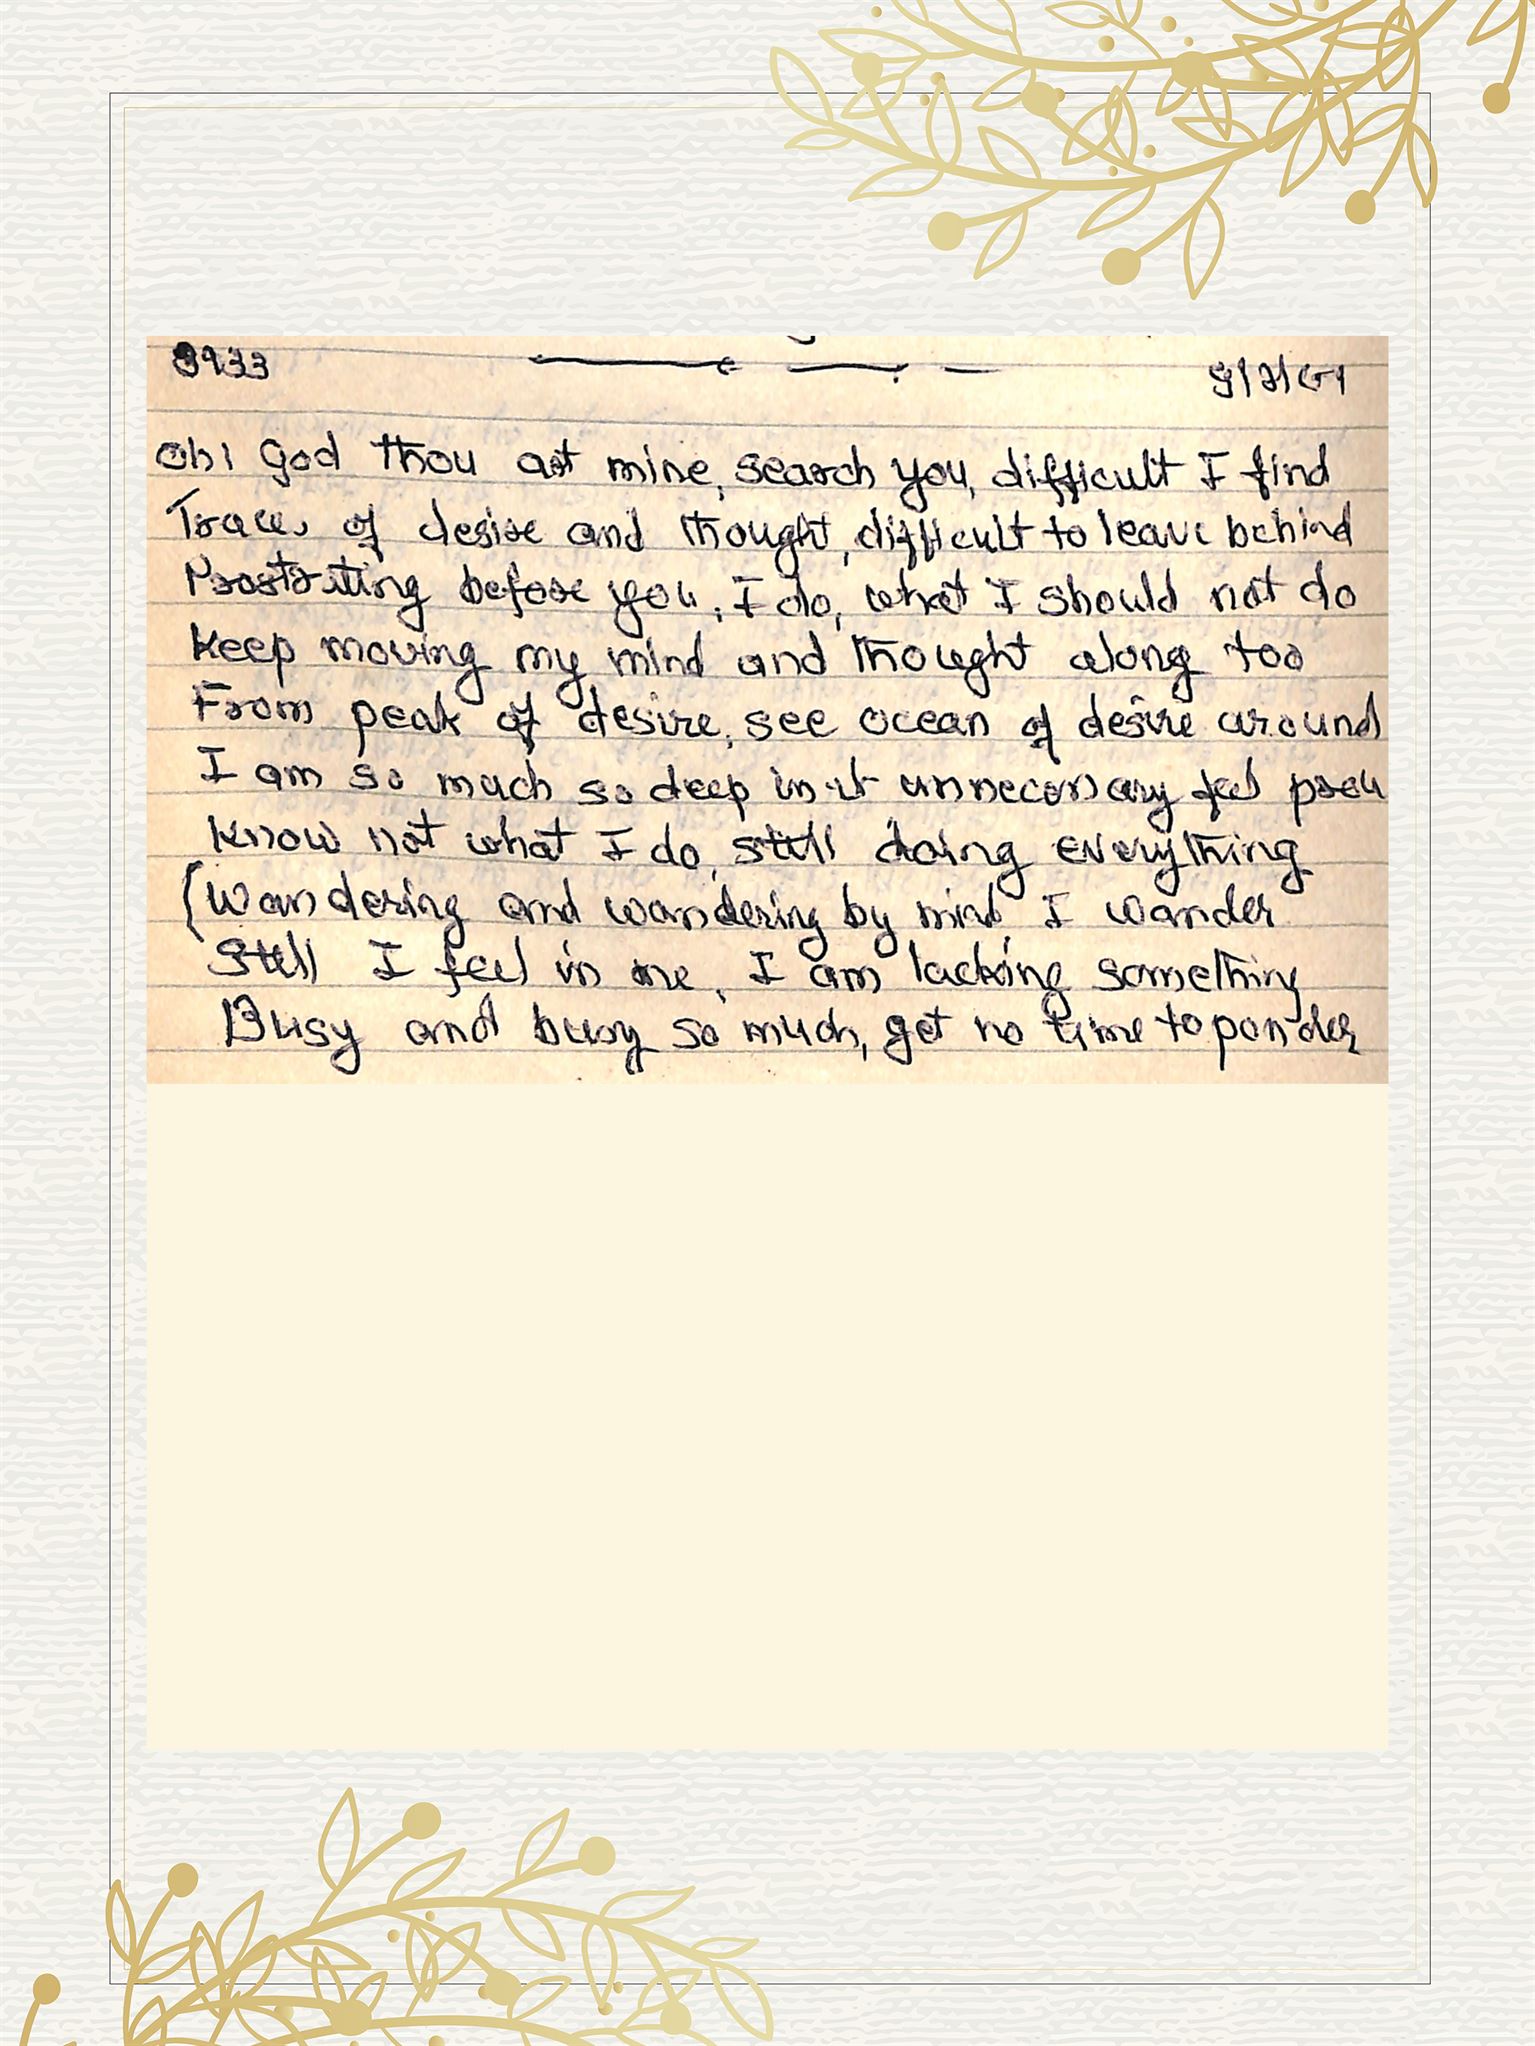 Oh! God thou art mine, search you, difficult I find
Traces of desire and thought, difficult to leave behind
Prostrating before you, I do, what I should not do
Keep moving my mind and thought along too
From peak of desire, see ocean of desire around
I am so much so deep in it unnecessary feel proud
Know not what I do, still doing everything
(Wandering and wandering by mind I wander
Still I feel in me, I am lacking something
Busy and busy so much, get no time to ponder